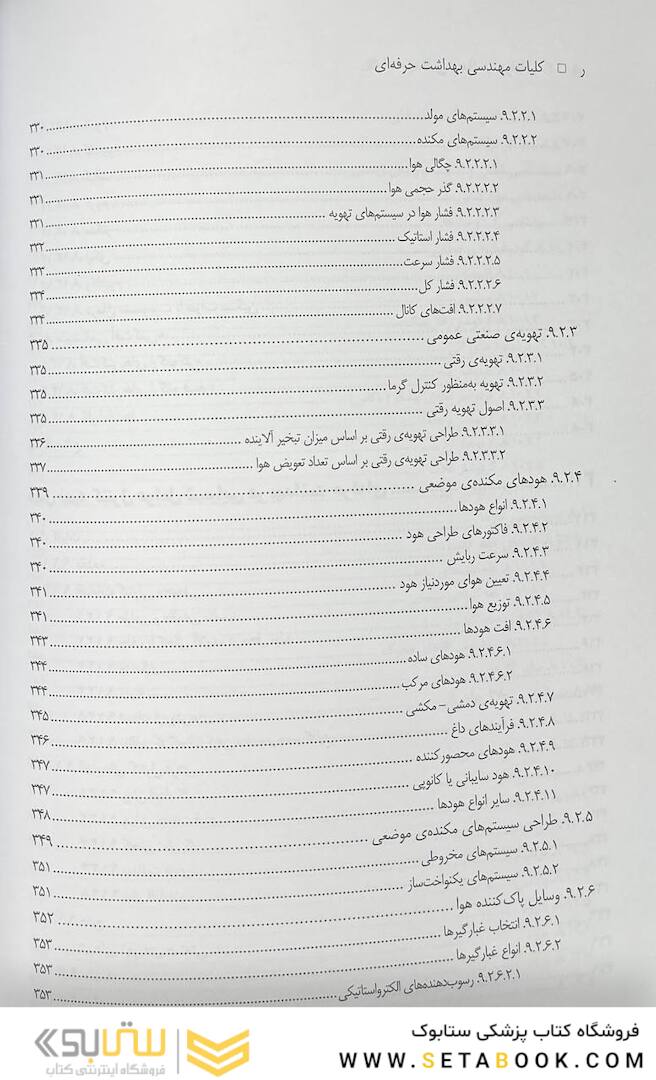 ر □ کلیات مهندسی بهداشت حرفه‌ای
۹.۲.۲.۱. سیستم‌های مولد ۳۳۰
۹.۲.۲.۲. سیستم‌های مکنده ۳۳۰
۹.۲.۲.۲.۱. چگالی هوا ۳۳۱
۹.۲.۲.۲.۲. گذر حجمی هوا ۳۳۱
۹.۲.۲.۲.۳. فشار هوا در سیستم‌های تهویه ۳۳۱
۹.۲.۲.۲.۴. فشار استاتیک ۳۳۲
۹.۲.۲.۲.۵. فشار سرعت ۳۳۳
۹.۲.۲.۲.۶. فشار کل ۳۳۴
۹.۲.۲.۲.۷. افت‌های کانال ۳۳۴
۹.۲.۳. تهویه‌ی صنعتی عمومی ۳۳۵
۹.۲.۳.۱. تهویه‌ی رقتی ۳۳۵
۹.۲.۳.۲. تهویه به‌منظور کنترل گرما ۳۳۵
۹.۲.۳.۳. اصول تهویه رقتی ۳۳۵
۹.۲.۳.۳.۱. طراحی تهویه‌ی رقتی بر اساس میزان تبخیر آلاینده ۳۳۶
۹.۲.۳.۳.۲. طراحی تهویه‌ی رقتی بر اساس تعداد تعویض هوا ۳۳۷
۹.۲.۴. هودهای مکنده‌ی موضعی ۳۳۹
۹.۲.۴.۱. انواع هودها ۳۴۰
۹.۲.۴.۲. فاکتورهای طراحی هود ۳۴۰
۹.۲.۴.۳. سرعت ربایش ۳۴۰
۹.۲.۴.۴. تعیین هوای موردنیاز هود ۳۴۱
۹.۲.۴.۵. توزیع هوا ۳۴۱
۹.۲.۴.۶. افت هودها ۳۴۳
۹.۲.۴.۶.۱. هودهای ساده ۳۴۴
۹.۲.۴.۶.۲. هودهای مرکب ۳۴۴
۹.۲.۴.۷. تهویه‌ی دمشی- مکشی ۳۴۵
۹.۲.۴.۸. فرآیندهای داغ ۳۴۶
۹.۲.۴.۹. هودهای محصورکننده ۳۴۷
۹.۲.۴.۱۰. هود سایبانی یا کانوپی ۳۴۷
۹.۲.۴.۱۱. سایر انواع هودها ۳۴۸
۹.۲.۵. طراحی سیستم‌های مکنده‌ی موضعی ۳۴۹
۹.۲.۵.۱. سیستم‌های مخروطی ۳۵۱
۹.۲.۵.۲. سیستم‌های یکنواخت‌ساز ۳۵۱
۹.۲.۶. وسایل پاک‌کننده هوا ۳۵۲
۹.۲.۶.۱. انتخاب غبارگیرها ۳۵۳
۹.۲.۶.۲. انواع غبارگیرها ۳۵۳
۹.۲.۶.۲.۱. رسوب‌دهنده‌های الکترواستاتیکی ۳۵۳
فروشگاه کتاب پزشکی ستابوک
WWW.SETABOOK.COM
ستابوک
فروشگاه اینترنتی کتاب